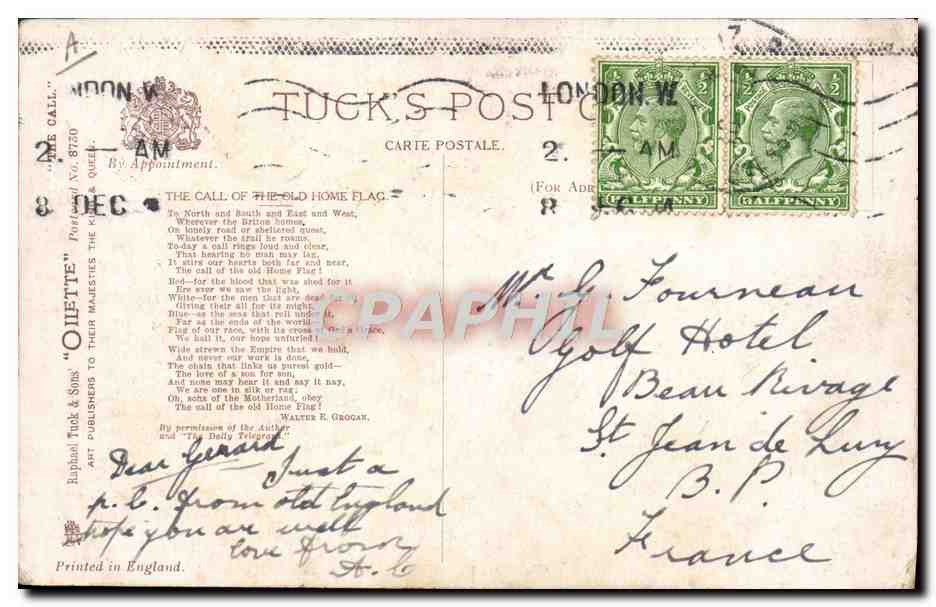 A
LONDON W.
2. — AM
8 DEC
LONDON. W.
2. — AM
8 DEC 14
TUCK'S POST C
CARTE POSTALE.
(FOR ADR
½ ½
HALFPENNY
½ ½
HALFPENNY
By Appointment.
"THE CALL."
Raphael Tuck & Sons' "OILETTE" Postcard No. 8750
ART PUBLISHERS TO THEIR MAJESTIES THE KING & QUEEN.
THE CALL OF THE OLD HOME FLAG.
To North and South and East and West,
Wherever the Briton homes,
On lonely road or sheltered quest,
Whatever the trail he roams.
To-day a call rings loud and clear,
That hearing no man may lag,
It stirs our hearts both far and near,
The call of the old Home Flag!
Red—for the blood that was shed for it
Ere ever we saw the light,
White—for the men that are dead for it,
Giving their all for its might,
Blue—as the seas that roll under it,
Far as the ends of the world—
Flag of our race, with its cross of God's Grace,
We hail it, our hope unfurled!
Wide strewn the Empire that we hold,
And never our work is done,
The chain that links us purest gold—
The love of a son for son,
And none may hear it and say it nay,
We are one in silk or rag;
Oh, sons of the Motherland, obey
The call of the old Home Flag!
WALTER E. GROGAN.
By permission of the Author
and "The Daily Telegraph."
Dear Gerard
Just a
p.c. from old England
hope you are well
love from
A.C
Printed in England.
Mr G. Fourneau
Golf Hotel
Beau Rivage
St. Jean de Luzy
B. P.
France
CPAPHIL